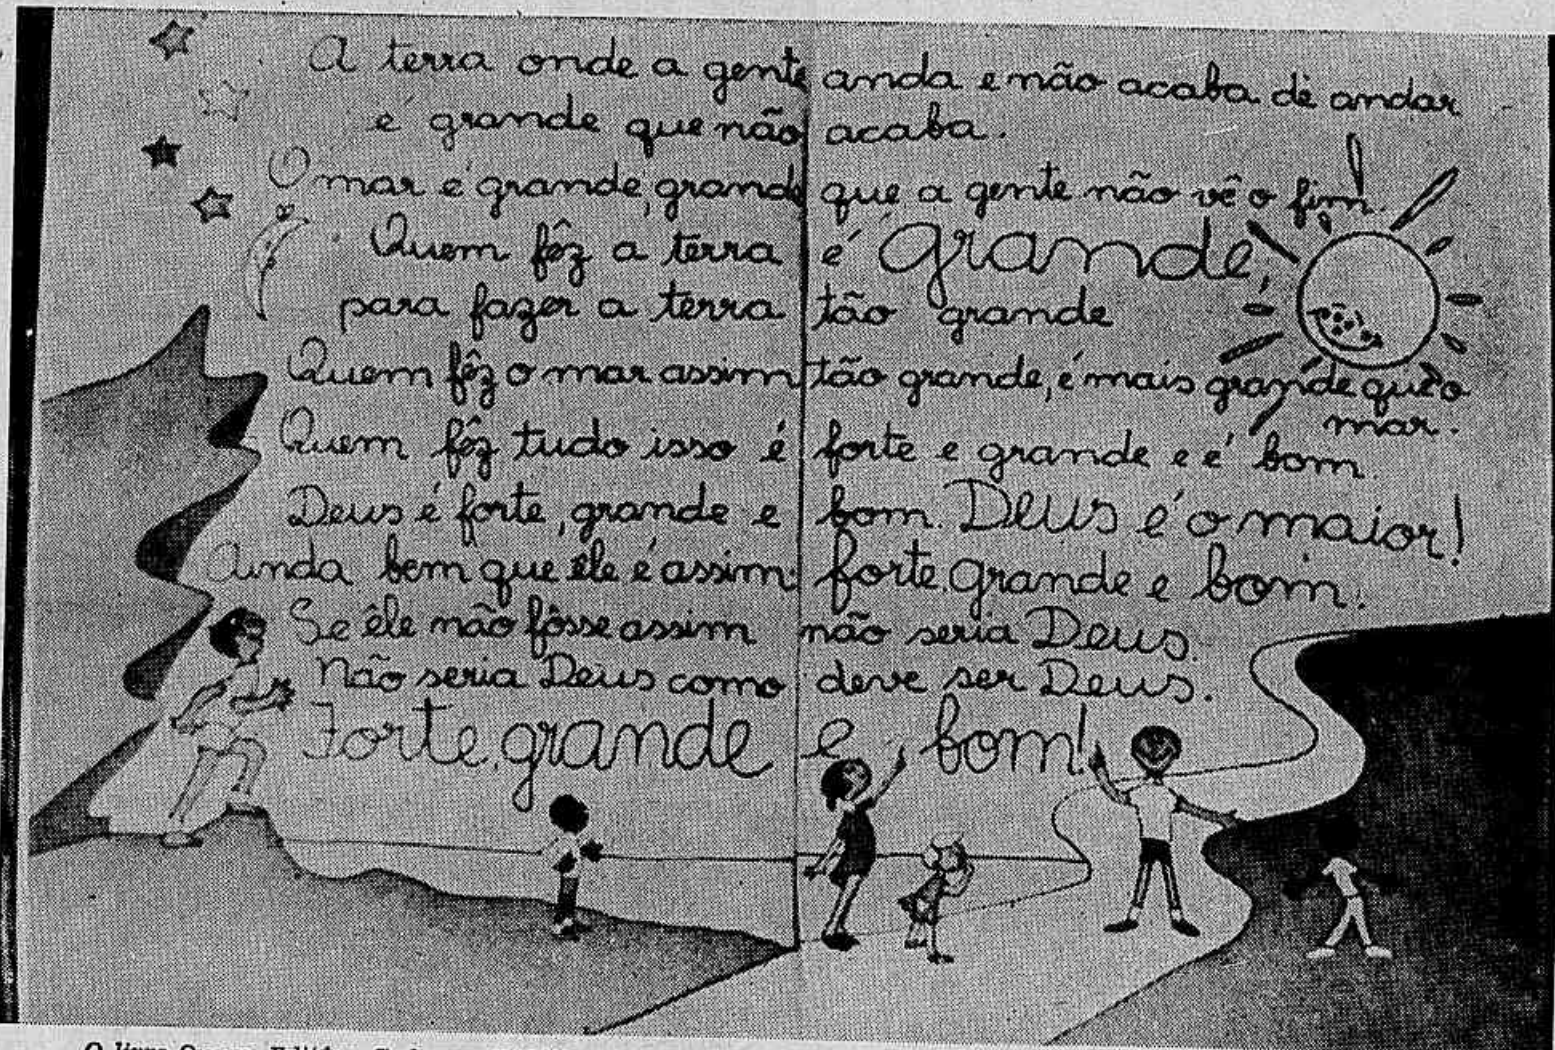 A terra onde a gente anda e não acaba de andar
é grande que não acaba.
O mar é grande, grande que a gente não vê o fim.
Quem fêz a terra é Grande,
para fazer a terra tão grande
Quem fêz o mar assim tão grande, é mais grande que o
mar.
Quem fêz tudo isso é forte e grande e é bom.
Deus é forte, grande e bom. Deus é o maior!
Ainda bem que êle é assim: forte, Grande e bom.
Se êle não fôsse assim não seria Deus.
Não seria Deus como deve ser Deus.
Forte, grande e bom!
O livro